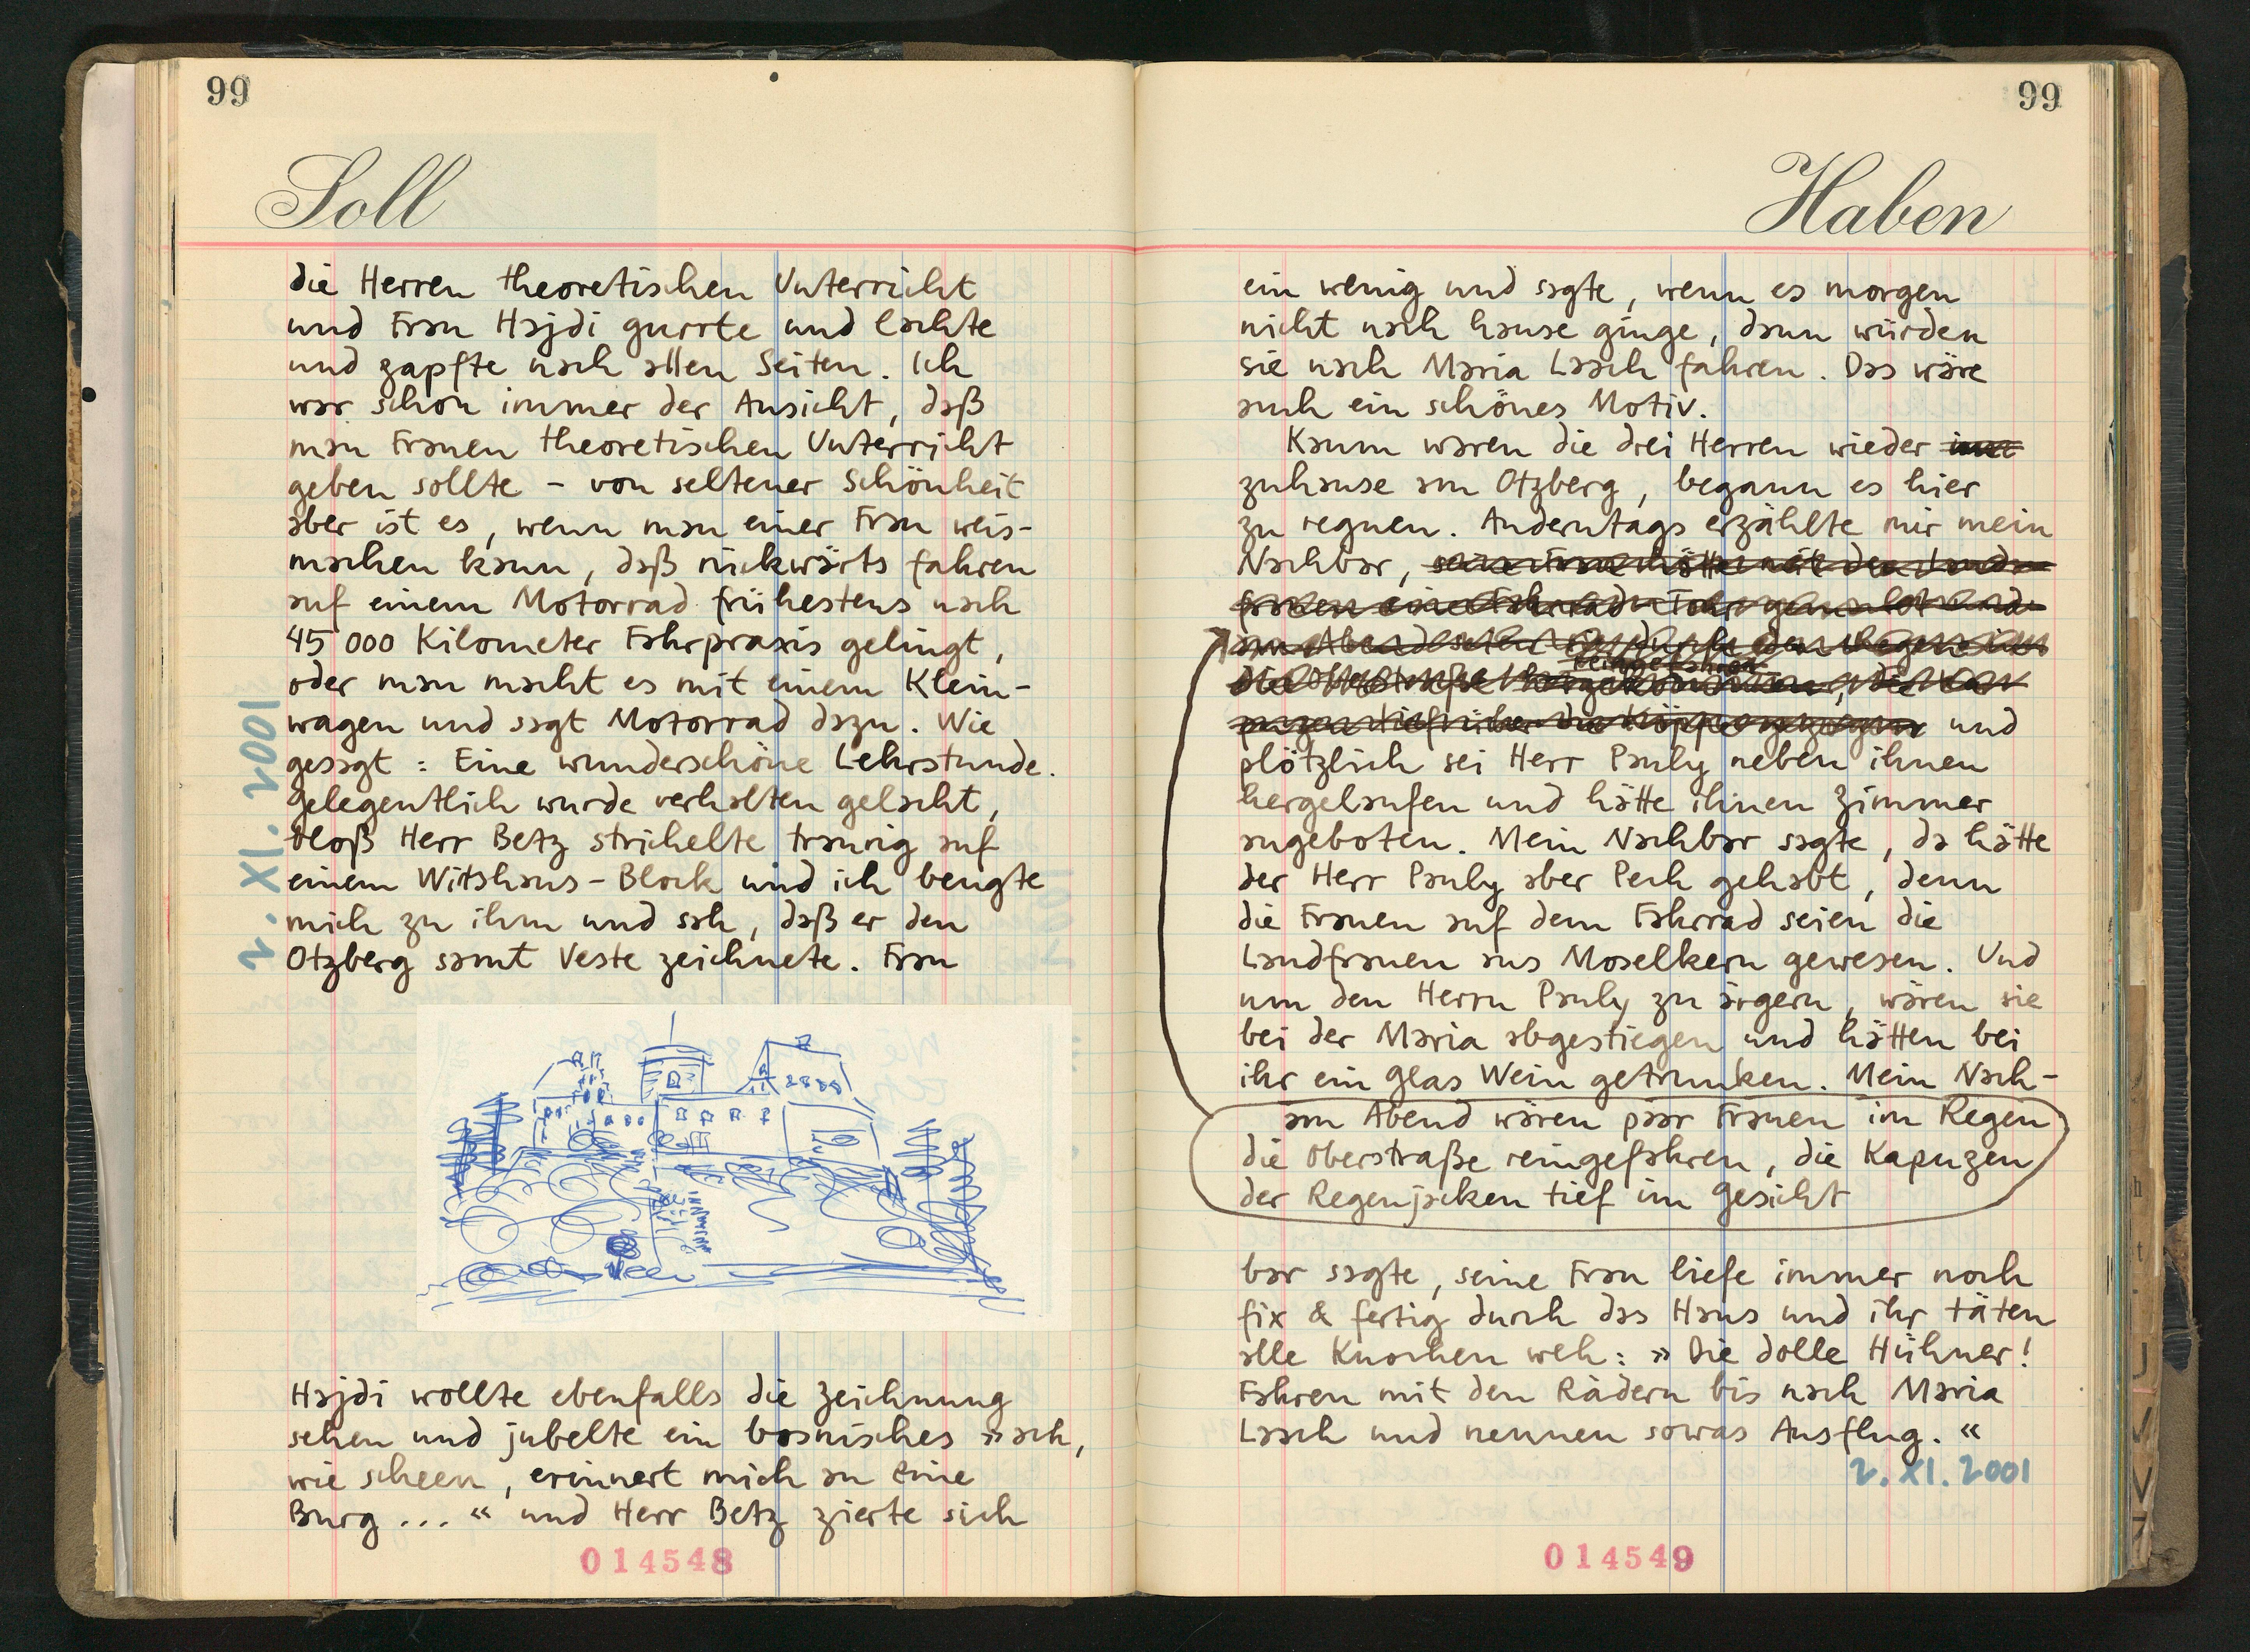 99
Soll
die Herren theoretischen Unterricht
und Frau Hajdi gurrte und lachte
und zapfte nach allen Seiten. Ich
war schon immer der Ansicht, daß
man Frauen theoretischen Unterricht
geben sollte – von seltener Schönheit
aber ist es, wenn man einer Frau weis-
machen kann, daß rückwärts fahren
auf einem Motorrad frühestens nach
45 000 Kilometer Fahrpraxis gelingt,
oder man macht es mit einem Klein-
wagen und sagt Motorrad dazu. Wie
gesagt: Eine wunderschöne Lehrstunde.
Gelegentlich wurde verhalten gelacht,
bloß Herr Betz strichelte traurig auf
einem Witshaus-Block und ich beugte
mich zu ihm und sah, daß er den
Otzberg samt Veste zeichnete. Frau
Hajdi wollte ebenfalls die Zeichnung
sehen und jubelte ein bosnisches »ach,
wie scheen, erinnert mich an eine
Burg ... « und Herr Betz zierte sich
2. XI. 2001
014548
99
Haben
ein wenig und sagte, wenn es morgen
nicht nach hause ginge, dann würden
sie nach Maria Laach fahren. Das wäre
auch ein schönes Motiv.
Kaum waren die drei Herren wieder
zuhause am Otzberg, begann es hier
zu regnen. Anderntags erzählte mir mein
Nachbar, seine Frau hätte mit den Land-
frauen eine Fahrrad-Tour gemacht und
am Abend seien sie durch den Regen in
die Oberstraße reingefahren, die Ka-
puzen tief über die Köpfe gezogen und
plötzlich sei Herr Pauly neben ihnen
hergelaufen und hätte ihnen Zimmer
angeboten. Mein Nachbar sagte, da hätte
der Herr Pauly aber Pech gehabt, denn
die Frauen auf dem Fahrrad seien die
Landfrauen aus Moselkern gewesen. Und
um den Herrn Pauly zu ärgern, wären sie
bei der Maria abgestiegen und hätten bei
ihr ein Glas Wein getrunken. Mein Nach-
am Abend wären paar Frauen im Regen
die Oberstraße reingefahren, die Kapuzen
der Regenjacken tief im Gesicht
bar sagte, seine Frau liefe immer noch
fix & fertig durch das Haus und ihr täten
alle Knochen weh: »Die dolle Hühner!
Fahren mit den Rädern bis nach Maria
Laach und nennen sowas Ausflug.«
2. XI. 2001
014549